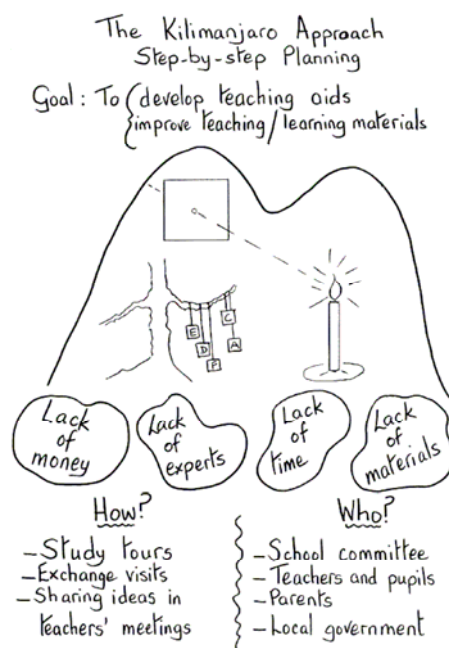 The Kilimanjaro Approach
Step-by-step Planning
Goal: To { develop teaching aids
improve teaching / learning materials
E
D
P
C
A
Lack
of
money
Lack
of
experts
Lack
of
time
Lack
of
materials
How?
– Study tours
– Exchange visits
– Sharing ideas in
teachers' meetings
Who?
– School committee
– Teachers and pupils
– Parents
– Local government